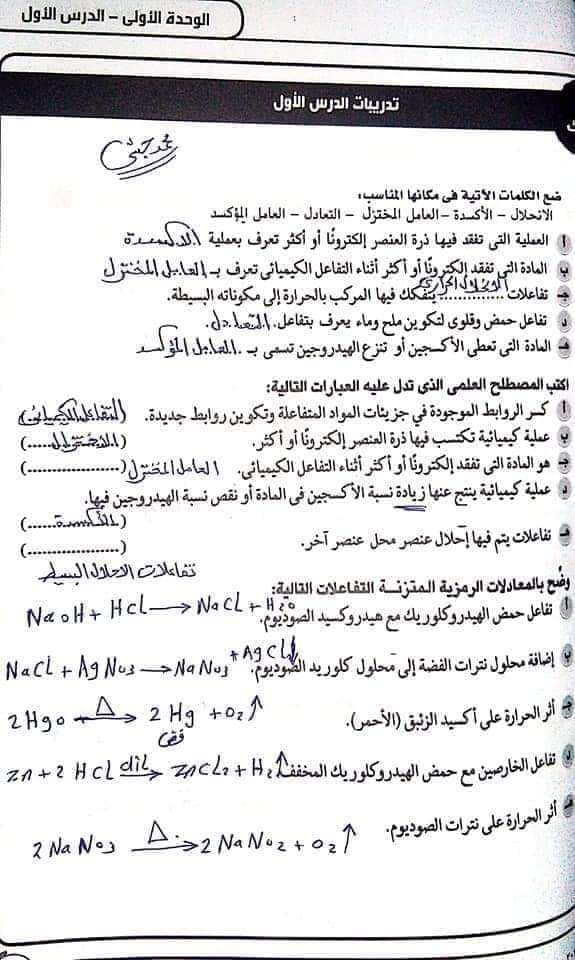 الوحدة الأولى – الدرس الأول
تدريبات الدرس الأول
ضع الكلمات الآتية فى مكانها المناسب:
الانحلال – الأكسدة – العامل المختزل – التعادل – العامل المؤكسد
أ العملية التى تفقد فيها ذرة العنصر إلكترونًا أو أكثر تعرف بعملية الاكسدة
ب المادة التى تفقد إلكترونًا أو أكثر أثناء التفاعل الكيميائى تعرف بـ العامل المختزل
جـ تفاعلات الانحلال الحرارى يتفكك فيها المركب بالحرارة إلى مكوناته البسيطة.
د تفاعل حمض وقلوى لتكوين ملح وماء يعرف بتفاعل التعادل.
هـ المادة التى تعطى الأكسجين أو تنزع الهيدروجين تسمى بـ العامل المؤكسد
اكتب المصطلح العلمى الذى تدل عليه العبارات التالية:
أ كسر الروابط الموجودة في جزيئات المواد المتفاعلة وتكوين روابط جديدة. (التفاعل الكيميائى)
ب عملية كيميائية تكتسب فيها ذرة العنصر إلكترونًا أو أكثر. (الاختزال......)
جـ هو المادة التى تفقد إلكترونًا أو أكثر أثناء التفاعل الكيميائى. العامل المختزل (..................)
د عملية كيميائية ينتج عنها زيادة نسبة الأكسجين فى المادة أو نقص نسبة الهيدروجين فيها.
(الأكسدة......)
هـ تفاعلات يتم فيها إحلال عنصر محل عنصر آخر. (..................)
تفاعلات الاحلال البسيط
وضح بالمعادلات الرمزية المتزنة التفاعلات التالية:
أ تفاعل حمض الهيدروكلوريك مع هيدروكسيد الصوديوم. NaOH + HCl → NaCl + H2O
ب إضافة محلول نترات الفضة إلى محلول كلوريد الصوديوم. NaCl + AgNO3 → NaNO3 + AgCl↓
جـ أثر الحرارة على أكسيد الزئبق (الأحمر). 2HgO Δ→ 2Hg + O2↑
فضى
د تفاعل الخارصين مع حمض الهيدروكلوريك المخفف. Zn + 2HCl dil→ ZnCl2 + H2↑
هـ أثر الحرارة على نترات الصوديوم.
2NaNO3 Δ→ 2NaNO2 + O2↑